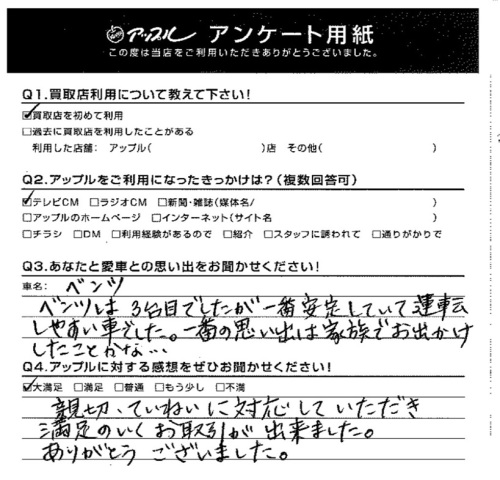 アップル アンケート用紙
この度は当店をご利用いただきありがとうございました。
Q1.買取店利用について教えて下さい!
☑買取店を初めて利用
□過去に買取店を利用したことがある
利用した店舗: アップル( )店 その他( )
Q2.アップルをご利用になったきっかけは?(複数回答可)
☑テレビCM □ラジオCM □新聞・雑誌(媒体名/ )
□アップルのホームページ □インターネット(サイト名 )
□チラシ □DM □利用経験があるので □紹介 □スタッフに誘われて □通りがかりで
Q3.あなたと愛車との思い出をお聞かせください!
車名: ベンツ
ベンツは3台目でしたが一番安定していて運転
しやすい車でした。一番の思い出は家族でお出かけ
したことかな…
Q4.アップルに対する感想をぜひお聞かせください!
☑大満足 □満足 □普通 □もう少し □不満
親切、ていねいに対応していただき
満足のいくお取引が出来ました。
ありがとうございました。